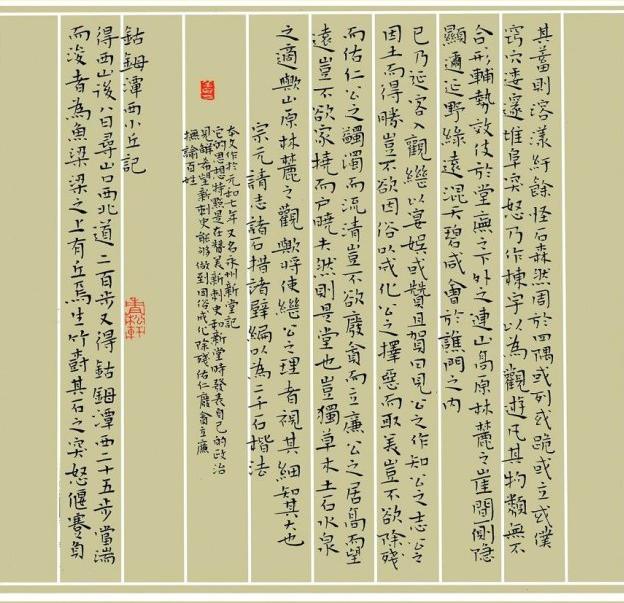 其蓄則溶漾紆餘怪石森然周於四隅或列或跪或立或僕
竅穴逶邃堆阜突怒乃作棟宇以為觀遊凡其物類無不
合形輔勢效伎於堂廡之下外之連山高原林麓之崖間側隱
顯邇延野綠遠混天碧咸會於譙門之內
已乃延客入觀繼以宴娛或贊且賀曰見公之作知公之志公之
因土而得勝豈不欲因俗以成化公之擇惡而取美豈不欲除殘
而佑仁公之蠲濁而流清豈不欲廢貪而立廉公之居高而望
遠豈不欲家撓而戶曉夫然則是堂也豈獨草木土石水泉
之適歟山原林麓之觀歟將使繼公之理者視其細知其大也
宗元請志諸石措諸壁編以為二千石楷法
本文作於元和七年又名永州新堂記
它的思想特點是在替美新刺史和新堂時發表自己的政治
見解希望新刺史能夠做到因俗成化除殘佑仁廢貪立廉
撫諭百姓
鈷鉧潭西小丘記
得西山後八日尋山口西北道二百步又得鈷鉧潭西二十五步當湍
而浚者為魚梁梁之上有丘焉生竹樹其石之突怒偃蹇負